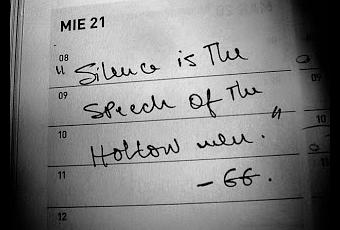 MIE 21
08
" Silence is The
09
Speech Of The
10
Hollow men. "
11
- GG.
12
09
10
11